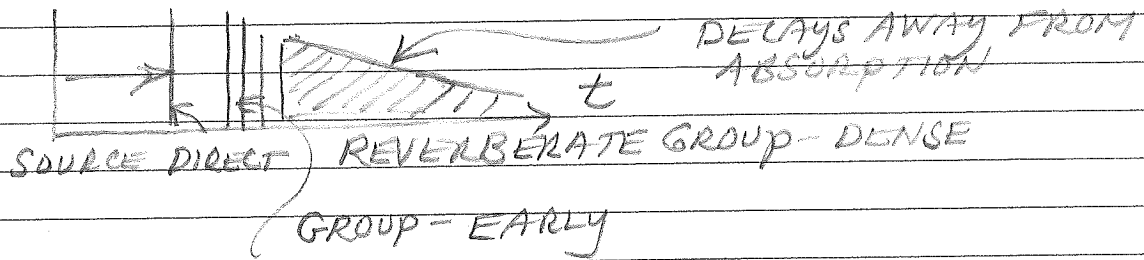 DECAYS AWAY FROM
ABSORPTION
t
SOURCE DIRECT REVERBERATE GROUP - DENSE
GROUP - EARLY